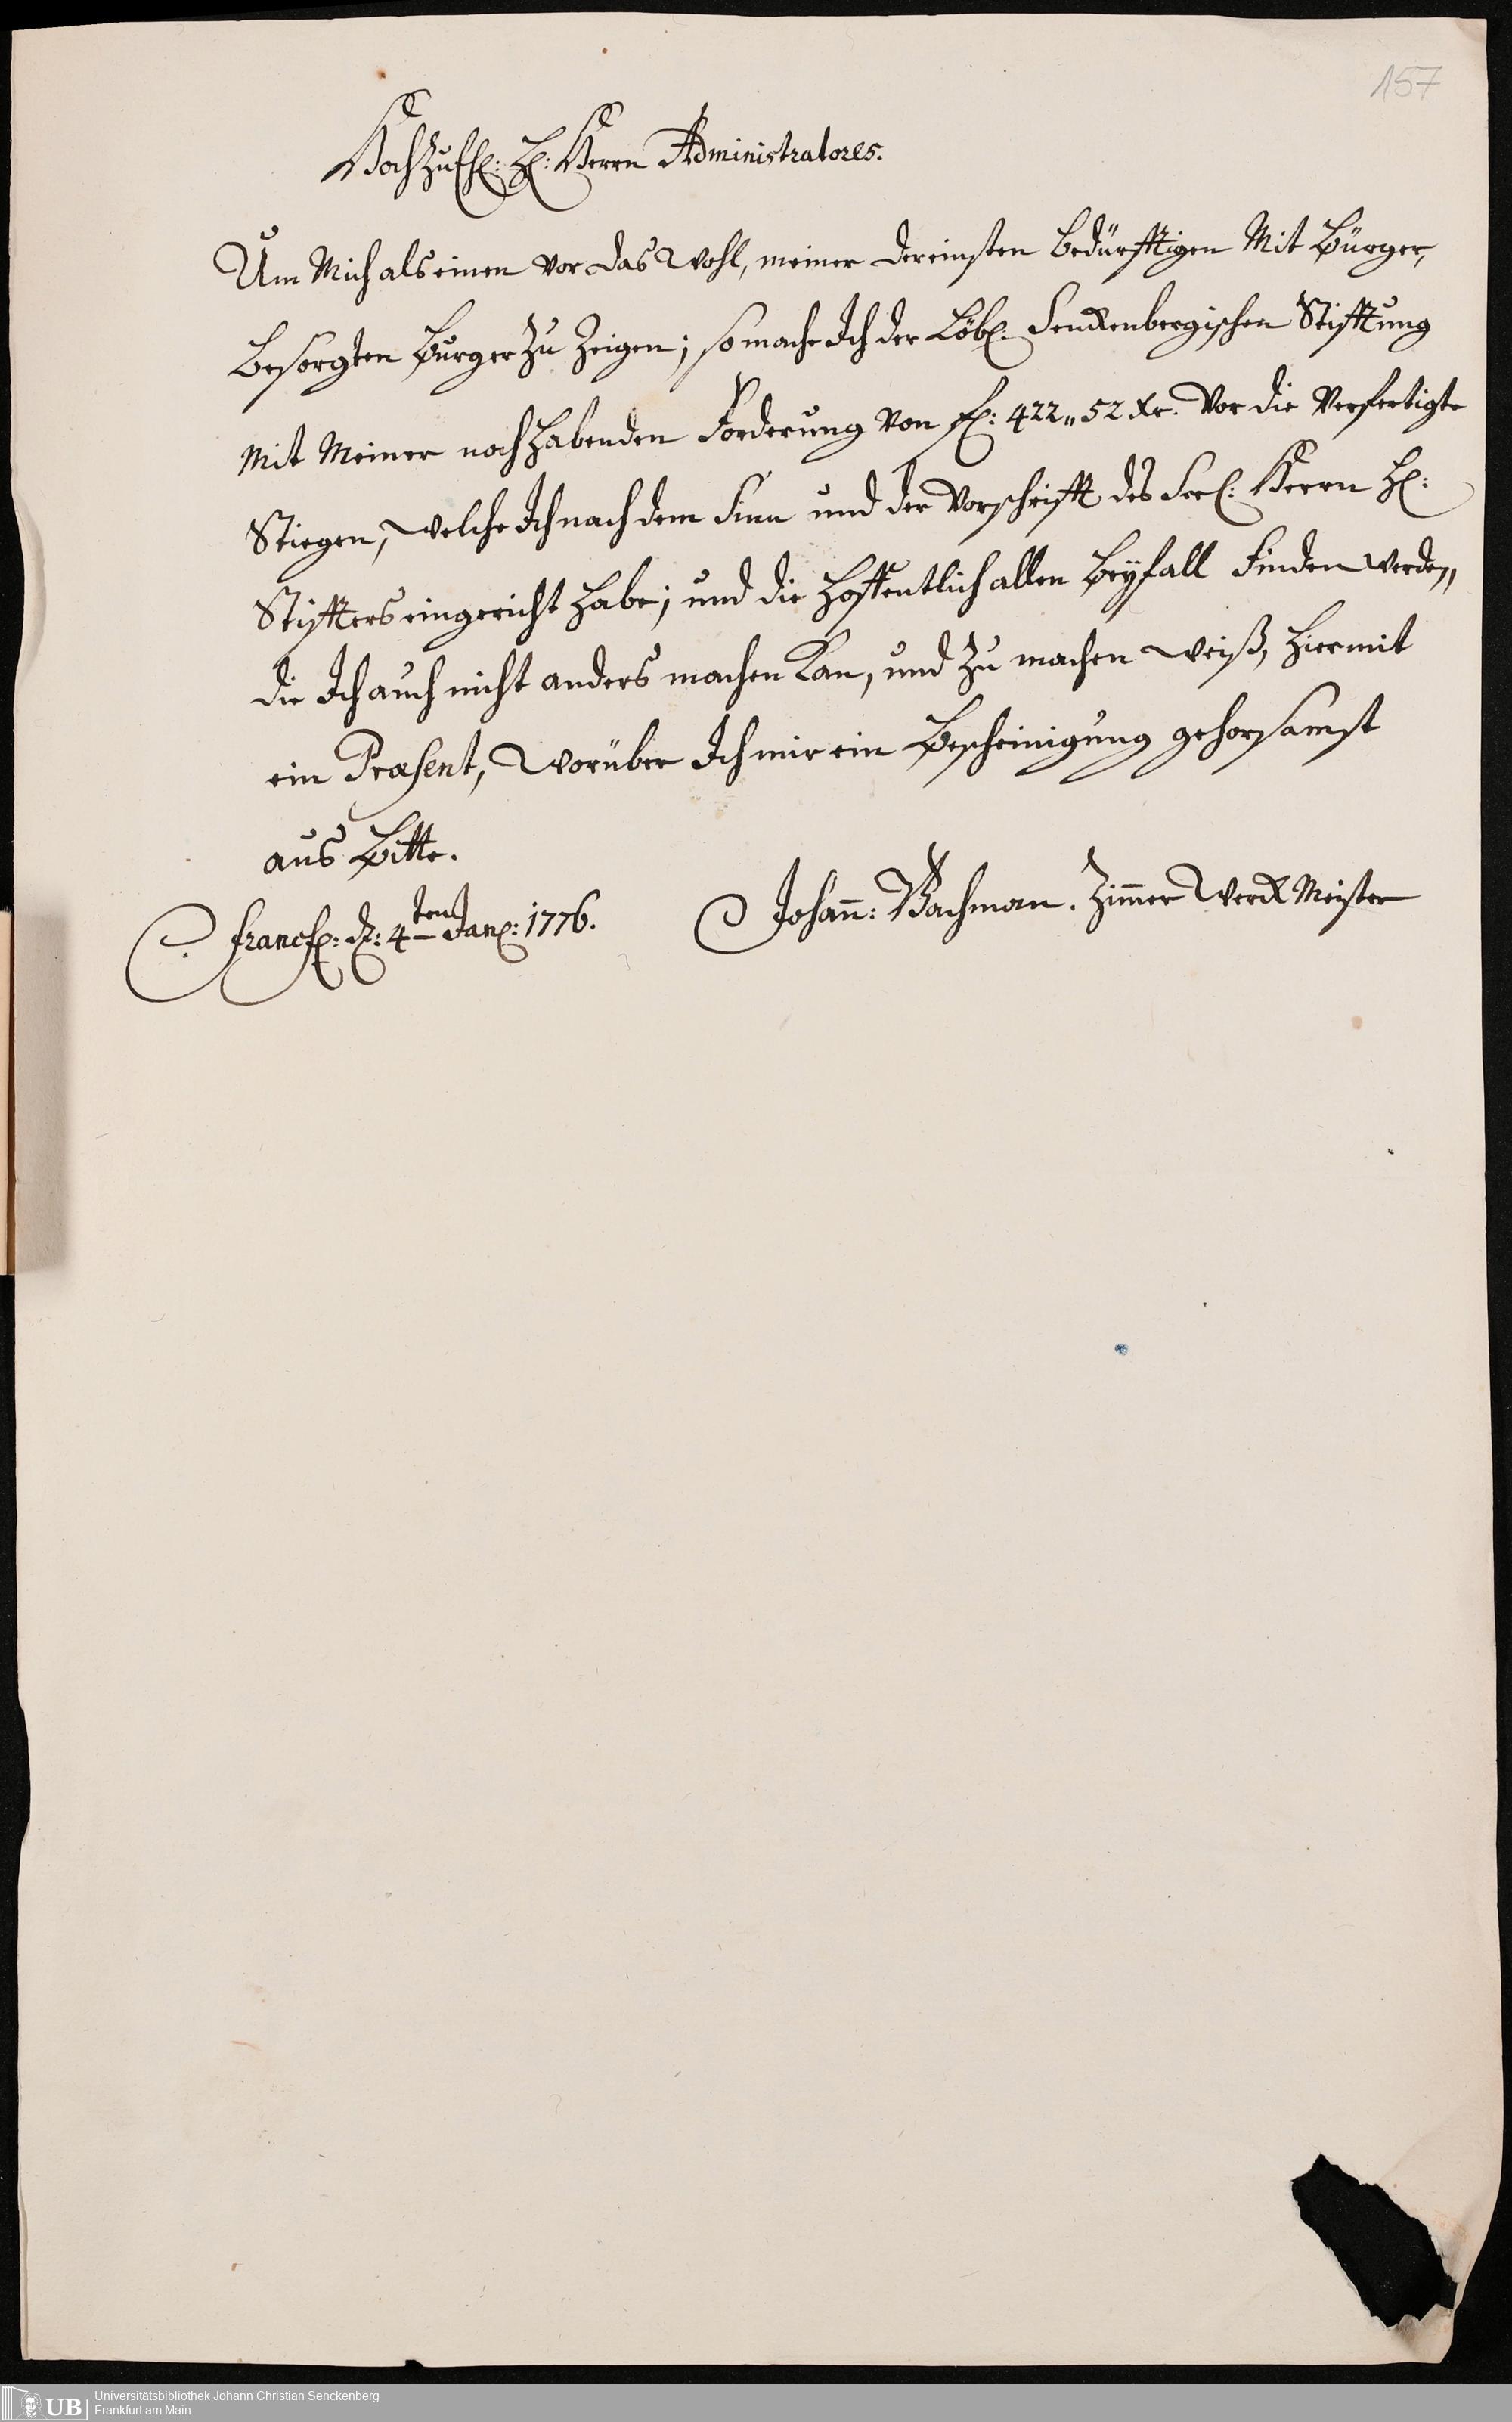 157
HochZuEh: H: Herrn Administratores.
Um Mich als einen vor das Wohl, meiner dereinsten bedürfftigen Mit Bürger,
besorgten Burger zu Zeigen; so mache Ich der Löbl. Senckenbergischen Stifftung
Mit Meiner noch habenden Forderung von f: 422 „ 52 Xr. Vor die Verfertigte
Stiegen, welche Ich nach dem Sinn und der Vorschrifft des Seel: Herrn H:
Stiffters eingericht habe; und die hoffentlich allen Beyfall Finden werden,
die Ich auch nicht anders machen Kan, und zu machen weiß, hiermit
ein Præsent, worüber Ich mir ein Bescheinigung gehorsamst
aus Bitte.
Francf: d: 4ten Jan: 1776.
Johann: Bachman. Zimmer Werck Meister
UB Universitätsbibliothek Johann Christian Senckenberg
Frankfurt am Main